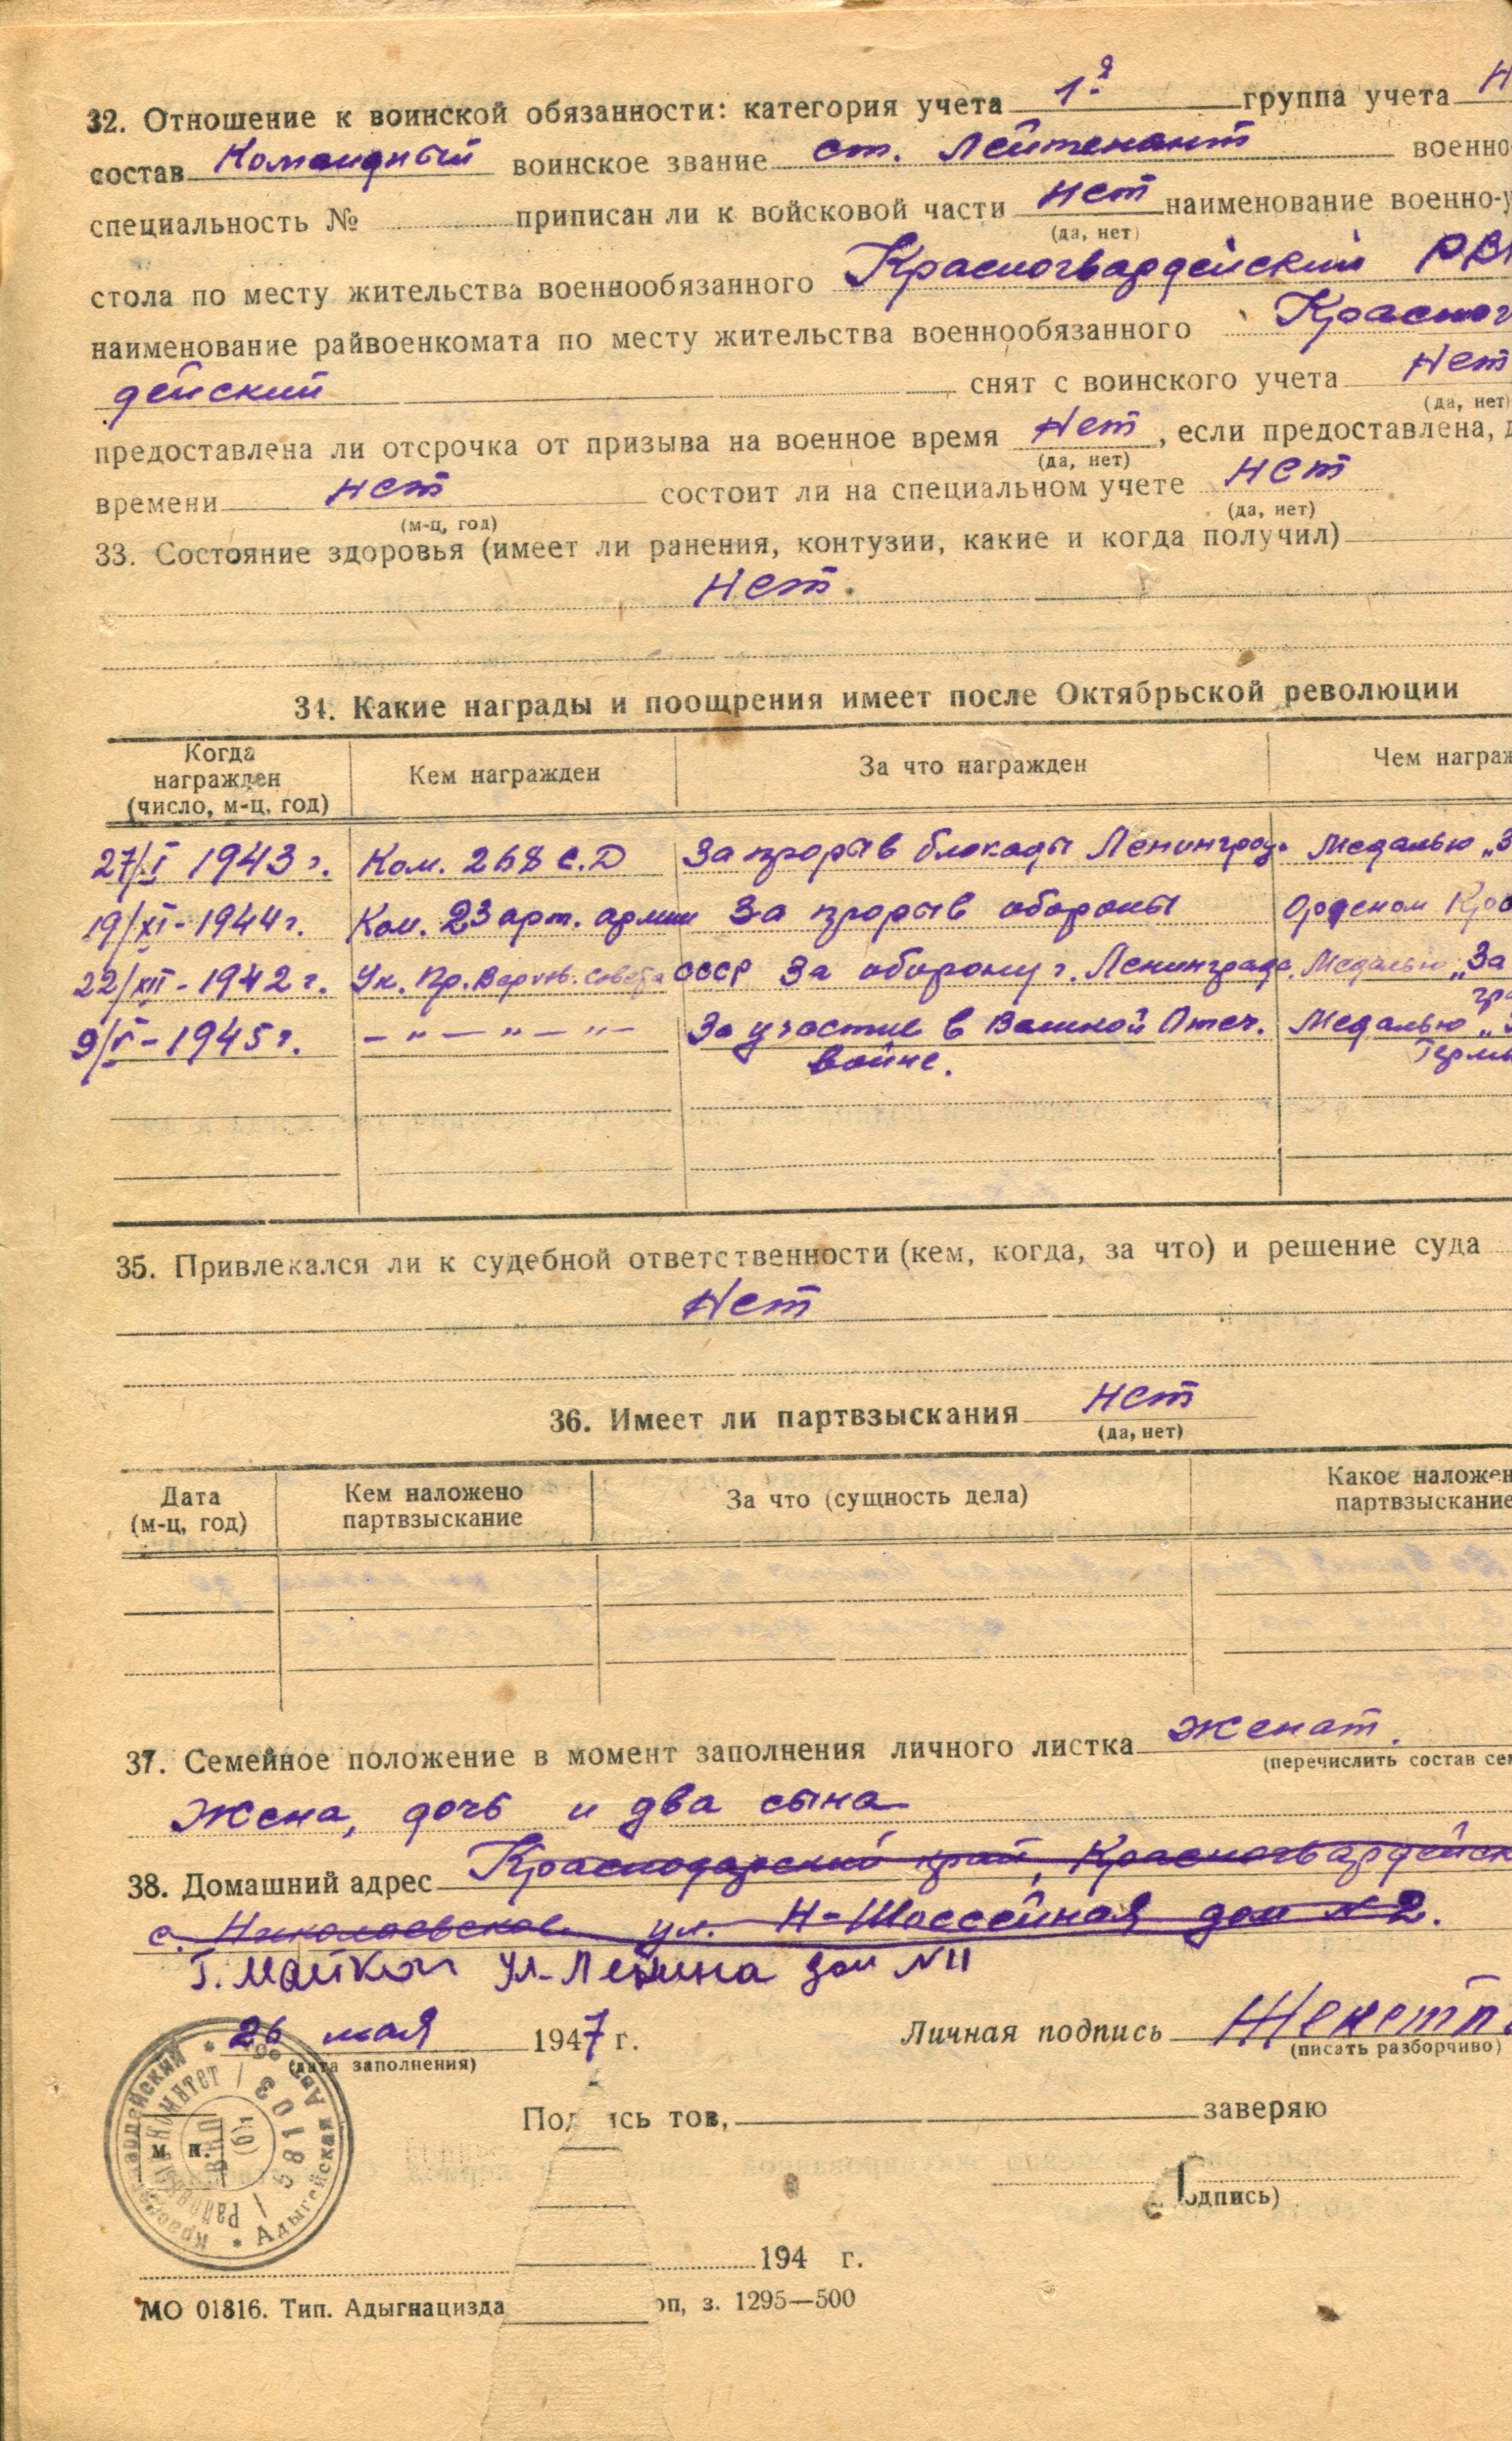 32. Отношение к воинской обязанности: категория учета 1-я группа учета Н
состав Командный воинское звание ст. Лейтенант военно
специальность № приписан ли к войсковой части нет наименование военно-у
(да, нет)
стола по месту жительства военнообязанного Красногвардейский РВ
наименование райвоенкомата по месту жительства военнообязанного Красног
дейский снят с воинского учета Нет
(да, нет)
предоставлена ли отсрочка от призыва на военное время Нет, если предоставлена, д
(да, нет)
времени нет состоит ли на специальном учете нет
(м-ц, год) (да, нет)
33. Состояние здоровья (имеет ли ранения, контузии, какие и когда получил)
Нет.
34. Какие награды и поощрения имеет после Октябрьской революции
Когда награжден (число, м-ц, год) Кем награжден За что награжден Чем награж
27/I 1943 г. Ком. 268 С.Д За прорыв блокады Ленинграда Медалью „З
19/XI-1944 г. Ком. 23 арт. армии За прорыв обороны Орденом Кра
22/XII-1942 г. Ук. Пр. Верхов. Совета СССР За оборону г. Ленинграда. Медалью „За
гра
9/V-1945 г. – „ – „ – „ – За участие в Великой Отеч. Медалью „З
войне. Герма
35. Привлекался ли к судебной ответственности (кем, когда, за что) и решение суда
Нет
36. Имеет ли партвзыскания нет
(да, нет)
Дата (м-ц, год) Кем наложено партвзыскание За что (сущность дела) Какое наложен партвзыскание
37. Семейное положение в момент заполнения личного листка Женат.
(перечислить состав сем
Жена, дочь и два сына
38. Домашний адрес Краснодарский край, Красногвардейск
с. Николаевское ул. Н-Шоссейная дом № 2.
Г. Майкоп ул-Ленина дом № 11
26 мая 1947 г. Личная подпись Женетл.
(дата заполнения) (писать разборчиво)
Под ись тов, заверяю
одпись)
м. п.
Красногвардейский * Адыгейская
Райпарткомитет
ВКП (б)
58103
194 г.
МО 01816. Тип. Адыгнацизда оп, з. 1295—500